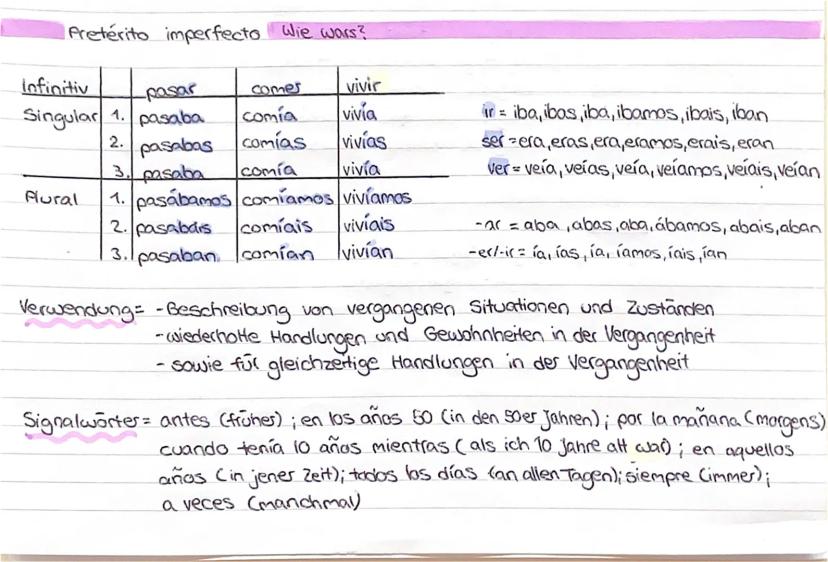 Pretérito imperfecto Wie wars?
Infinitiv pasar comer vivir
Singular 1. pasaba comía vivía
2. pasabas comías vivías
3. pasaba comía vivía
Plural 1. pasábamos comíamos vivíamos
2. pasabais comíais vivíais
3. pasaban comían vivían
ir = iba, ibas, iba, ibamos, ibais, iban
ser = era, eras, era, eramos, erais, eran
ver = veía, veías, veía, veíamos, veíais, veían
-ar = aba, abas, aba, ábamos, abais, aban
-er/-ir = ía, ías, ía, íamos, íais, ían
Verwendung = - Beschreibung von vergangenen Situationen und Zuständen
- wiederholte Handlungen und Gewohnheiten in der Vergangenheit
- sowie für gleichzeitige Handlungen in der Vergangenheit
Signalwörter = antes (früher) ; en los años 50 (in den 50er Jahren) ; por la mañana (morgens)
cuando tenía 10 años mientras (als ich 10 Jahre alt war) ; en aquellos
años (in jener Zeit); todos los días (an allen Tagen); siempre (immer) ;
a veces (manchmal)